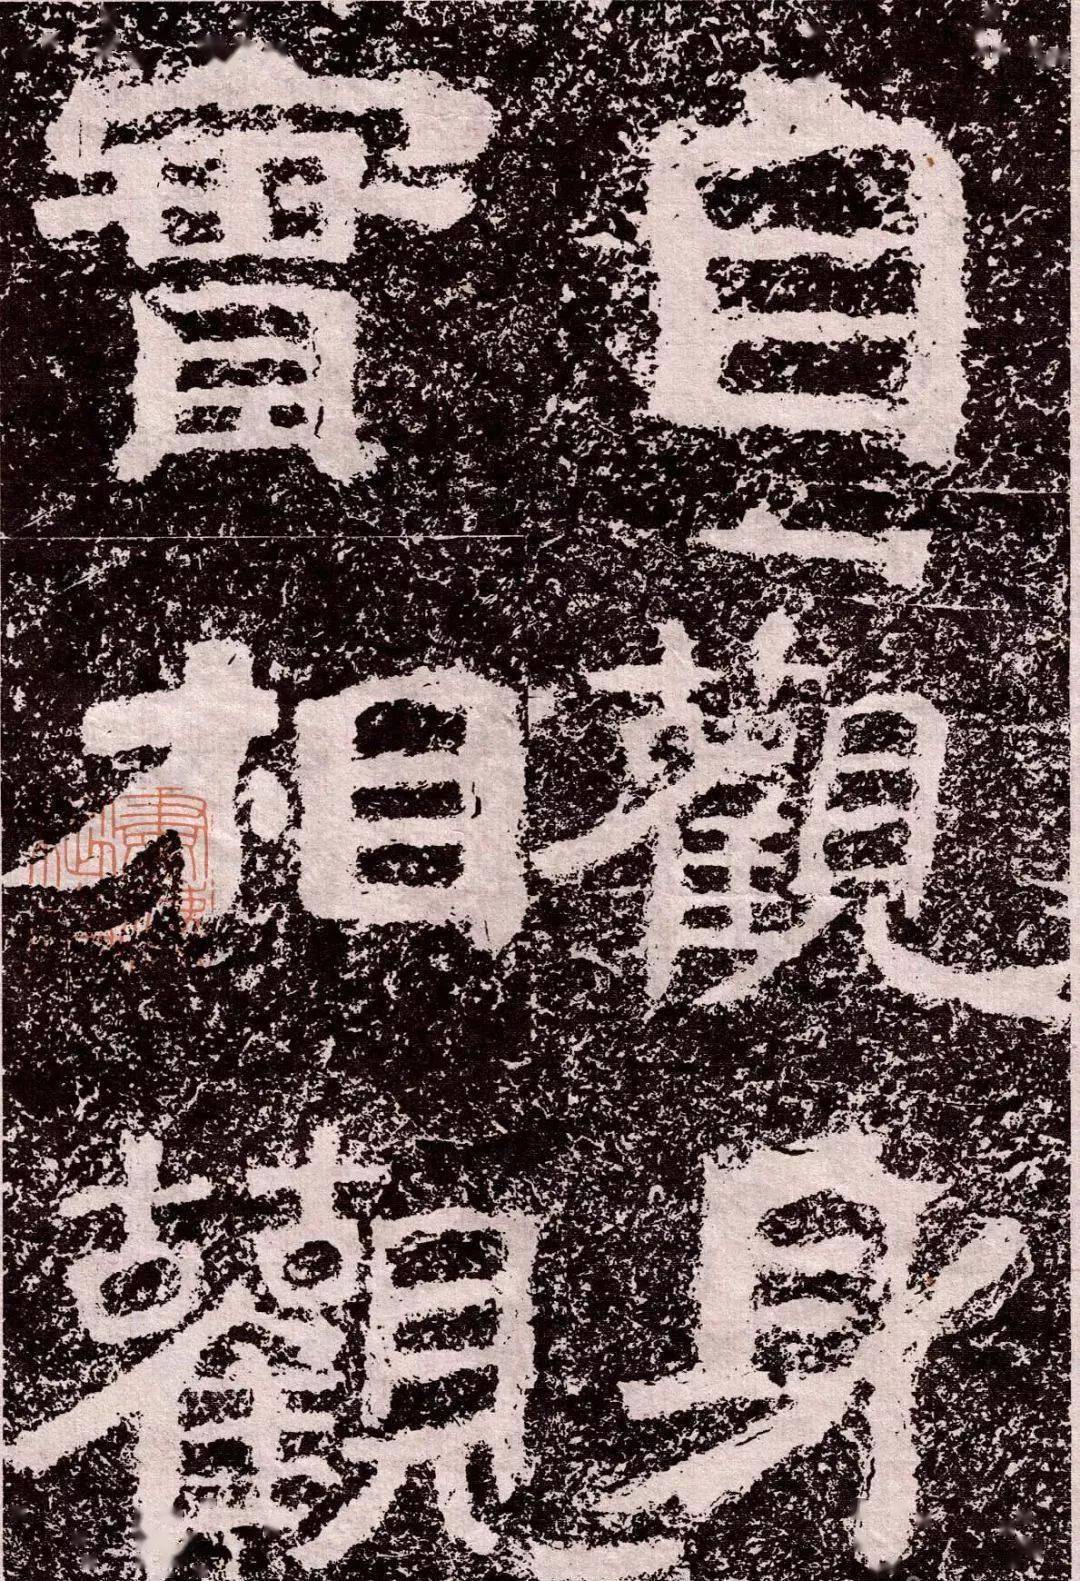 自觀身
實相觀